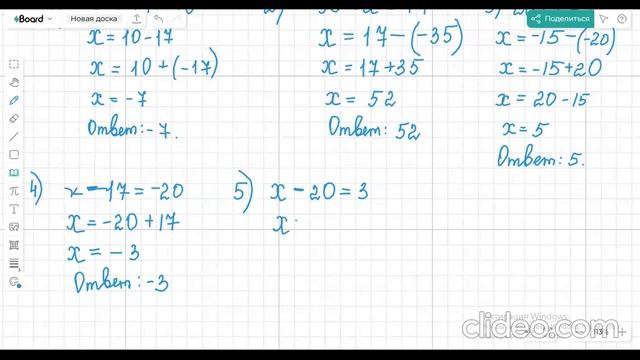 sBoard
Новая доска
Поделиться
x = 10 - 17
x = 10 + (-17)
x = -7
Ответ: -7.
x = 17 - (-35)
x = 17 + 35
x = 52
Ответ: 52
x = -15 - (-20)
x = -15 + 20
x = 20 - 15
x = 5
Ответ: 5.
4) x - 17 = -20
x = -20 + 17
x = -3
Ответ: -3
5) x - 20 = 3
x
Windows
clideo.com